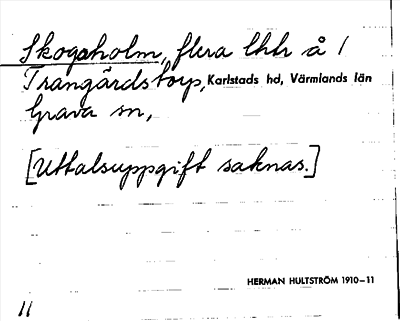 Skogsholm, flera lhhr å /
Trangärdstorp, Karlstads hd, Värmlands län
Grava sn,
[Uttalsuppgift saknas.]
HERMAN HULTSTRÖM 1910–11
11